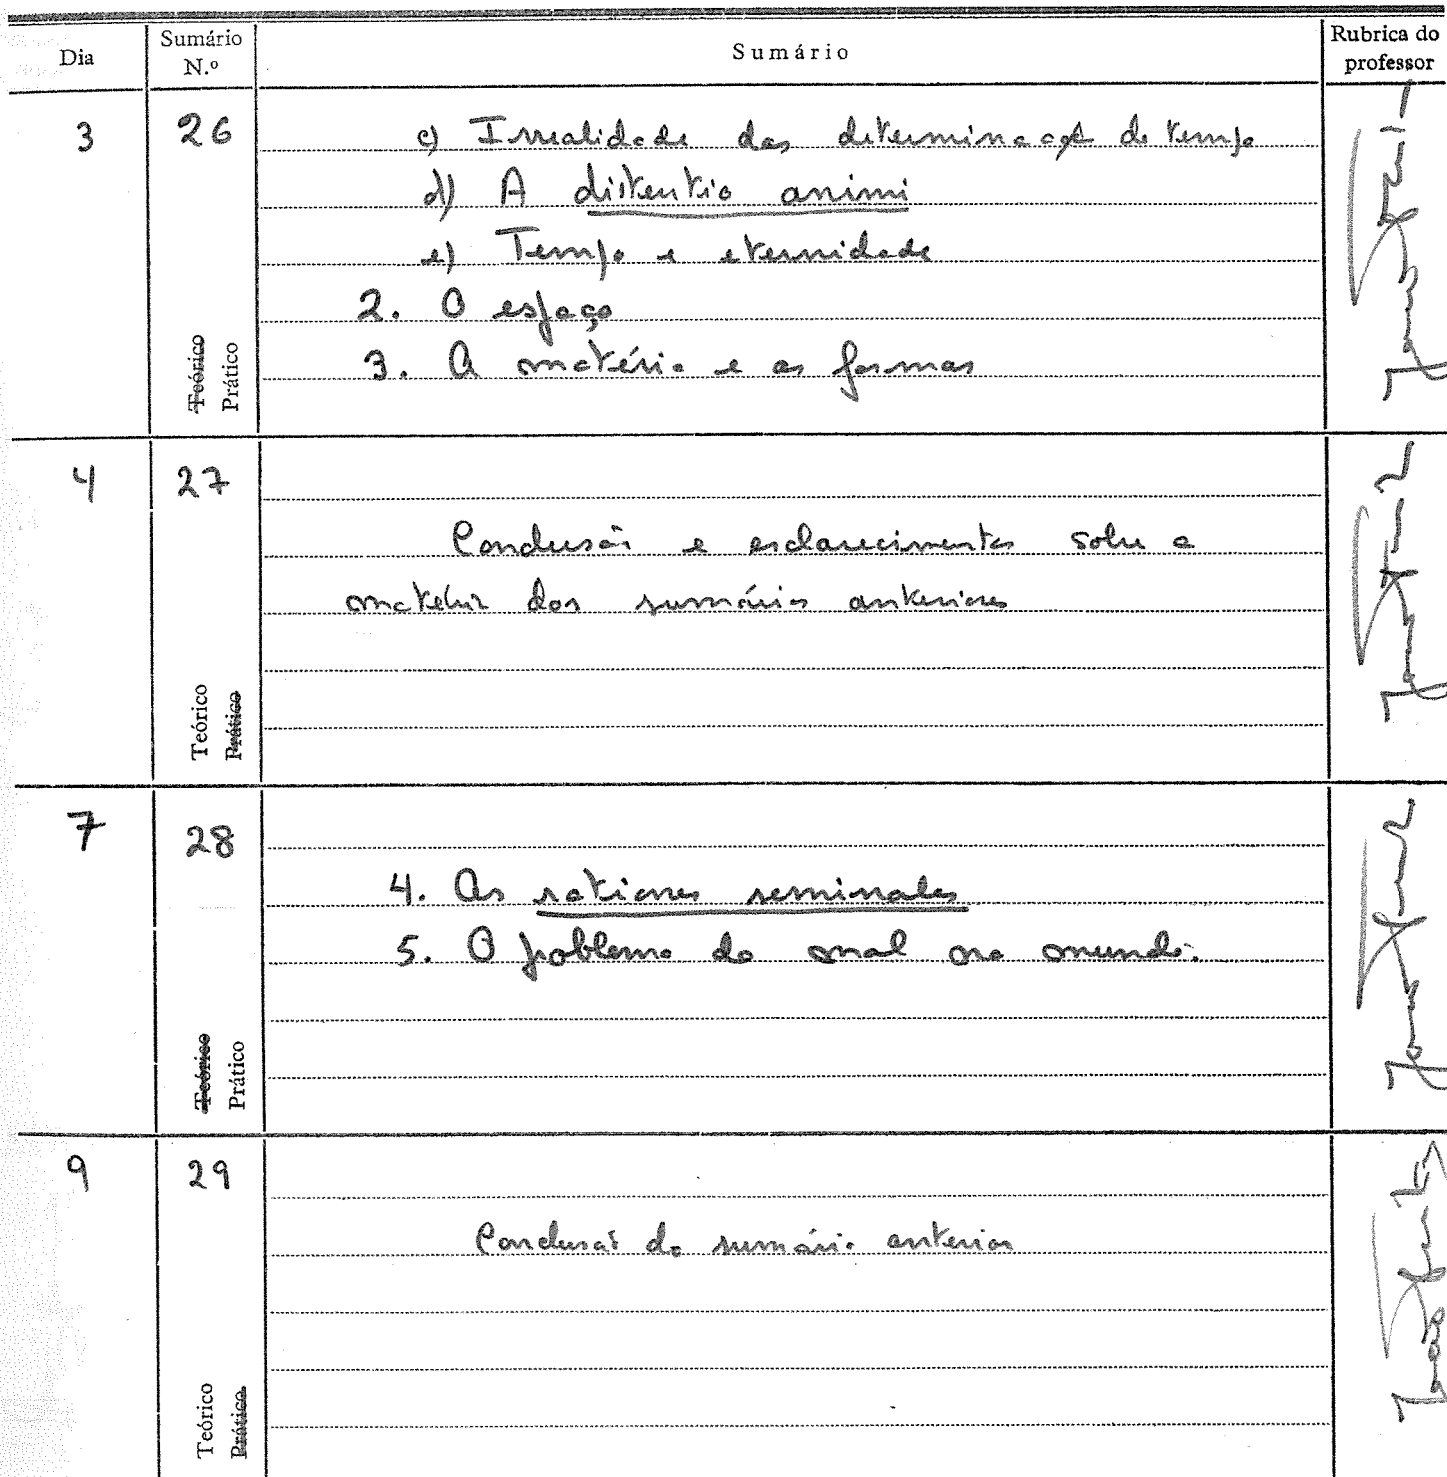 Dia
Sumário N.º
Sumário
Rubrica do professor
3
26
c) Irrealidade das determinações do tempo
d) A distentio animi
e) Tempo e eternidade
2. O espaço
3. A matéria e as formas
Teórico
Prático
4
27
Conclusão e esclarecimentos sobre a
matéria dos sumários anteriores
Teórico
Prático
7
28
4. As rationes seminales
5. O problema do mal no mundo.
Teórico
Prático
9
29
Conclusão do sumário anterior
Teórico
Prático